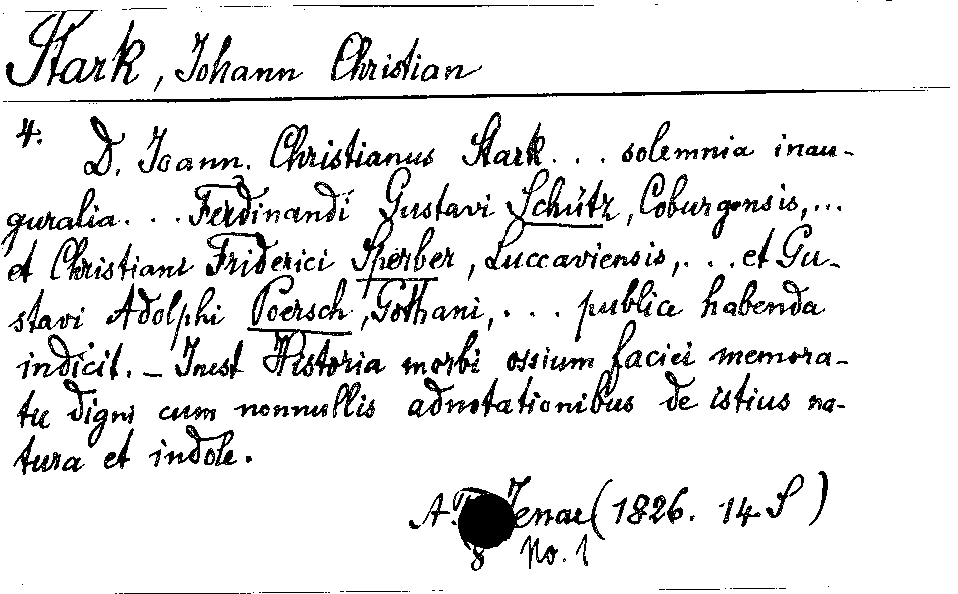 Stark, Johann Christian
4. D. Joann. Christianus Stark... solemnia inau-
guralia... Ferdinandi Gustavi Schütz, Coburgensis,...
et Christiani Friderici Sperber, Luccaviensis,... et Gu-
stavi Adolphi Poersch, Gothani,... publice habenda
indicit. – Inest Historia morbi ossium faciei memora-
tu digni cum nonnullis adnotationibus de istius na-
tura et indole.
Jenae (1826. 14 S)
8 No. 1